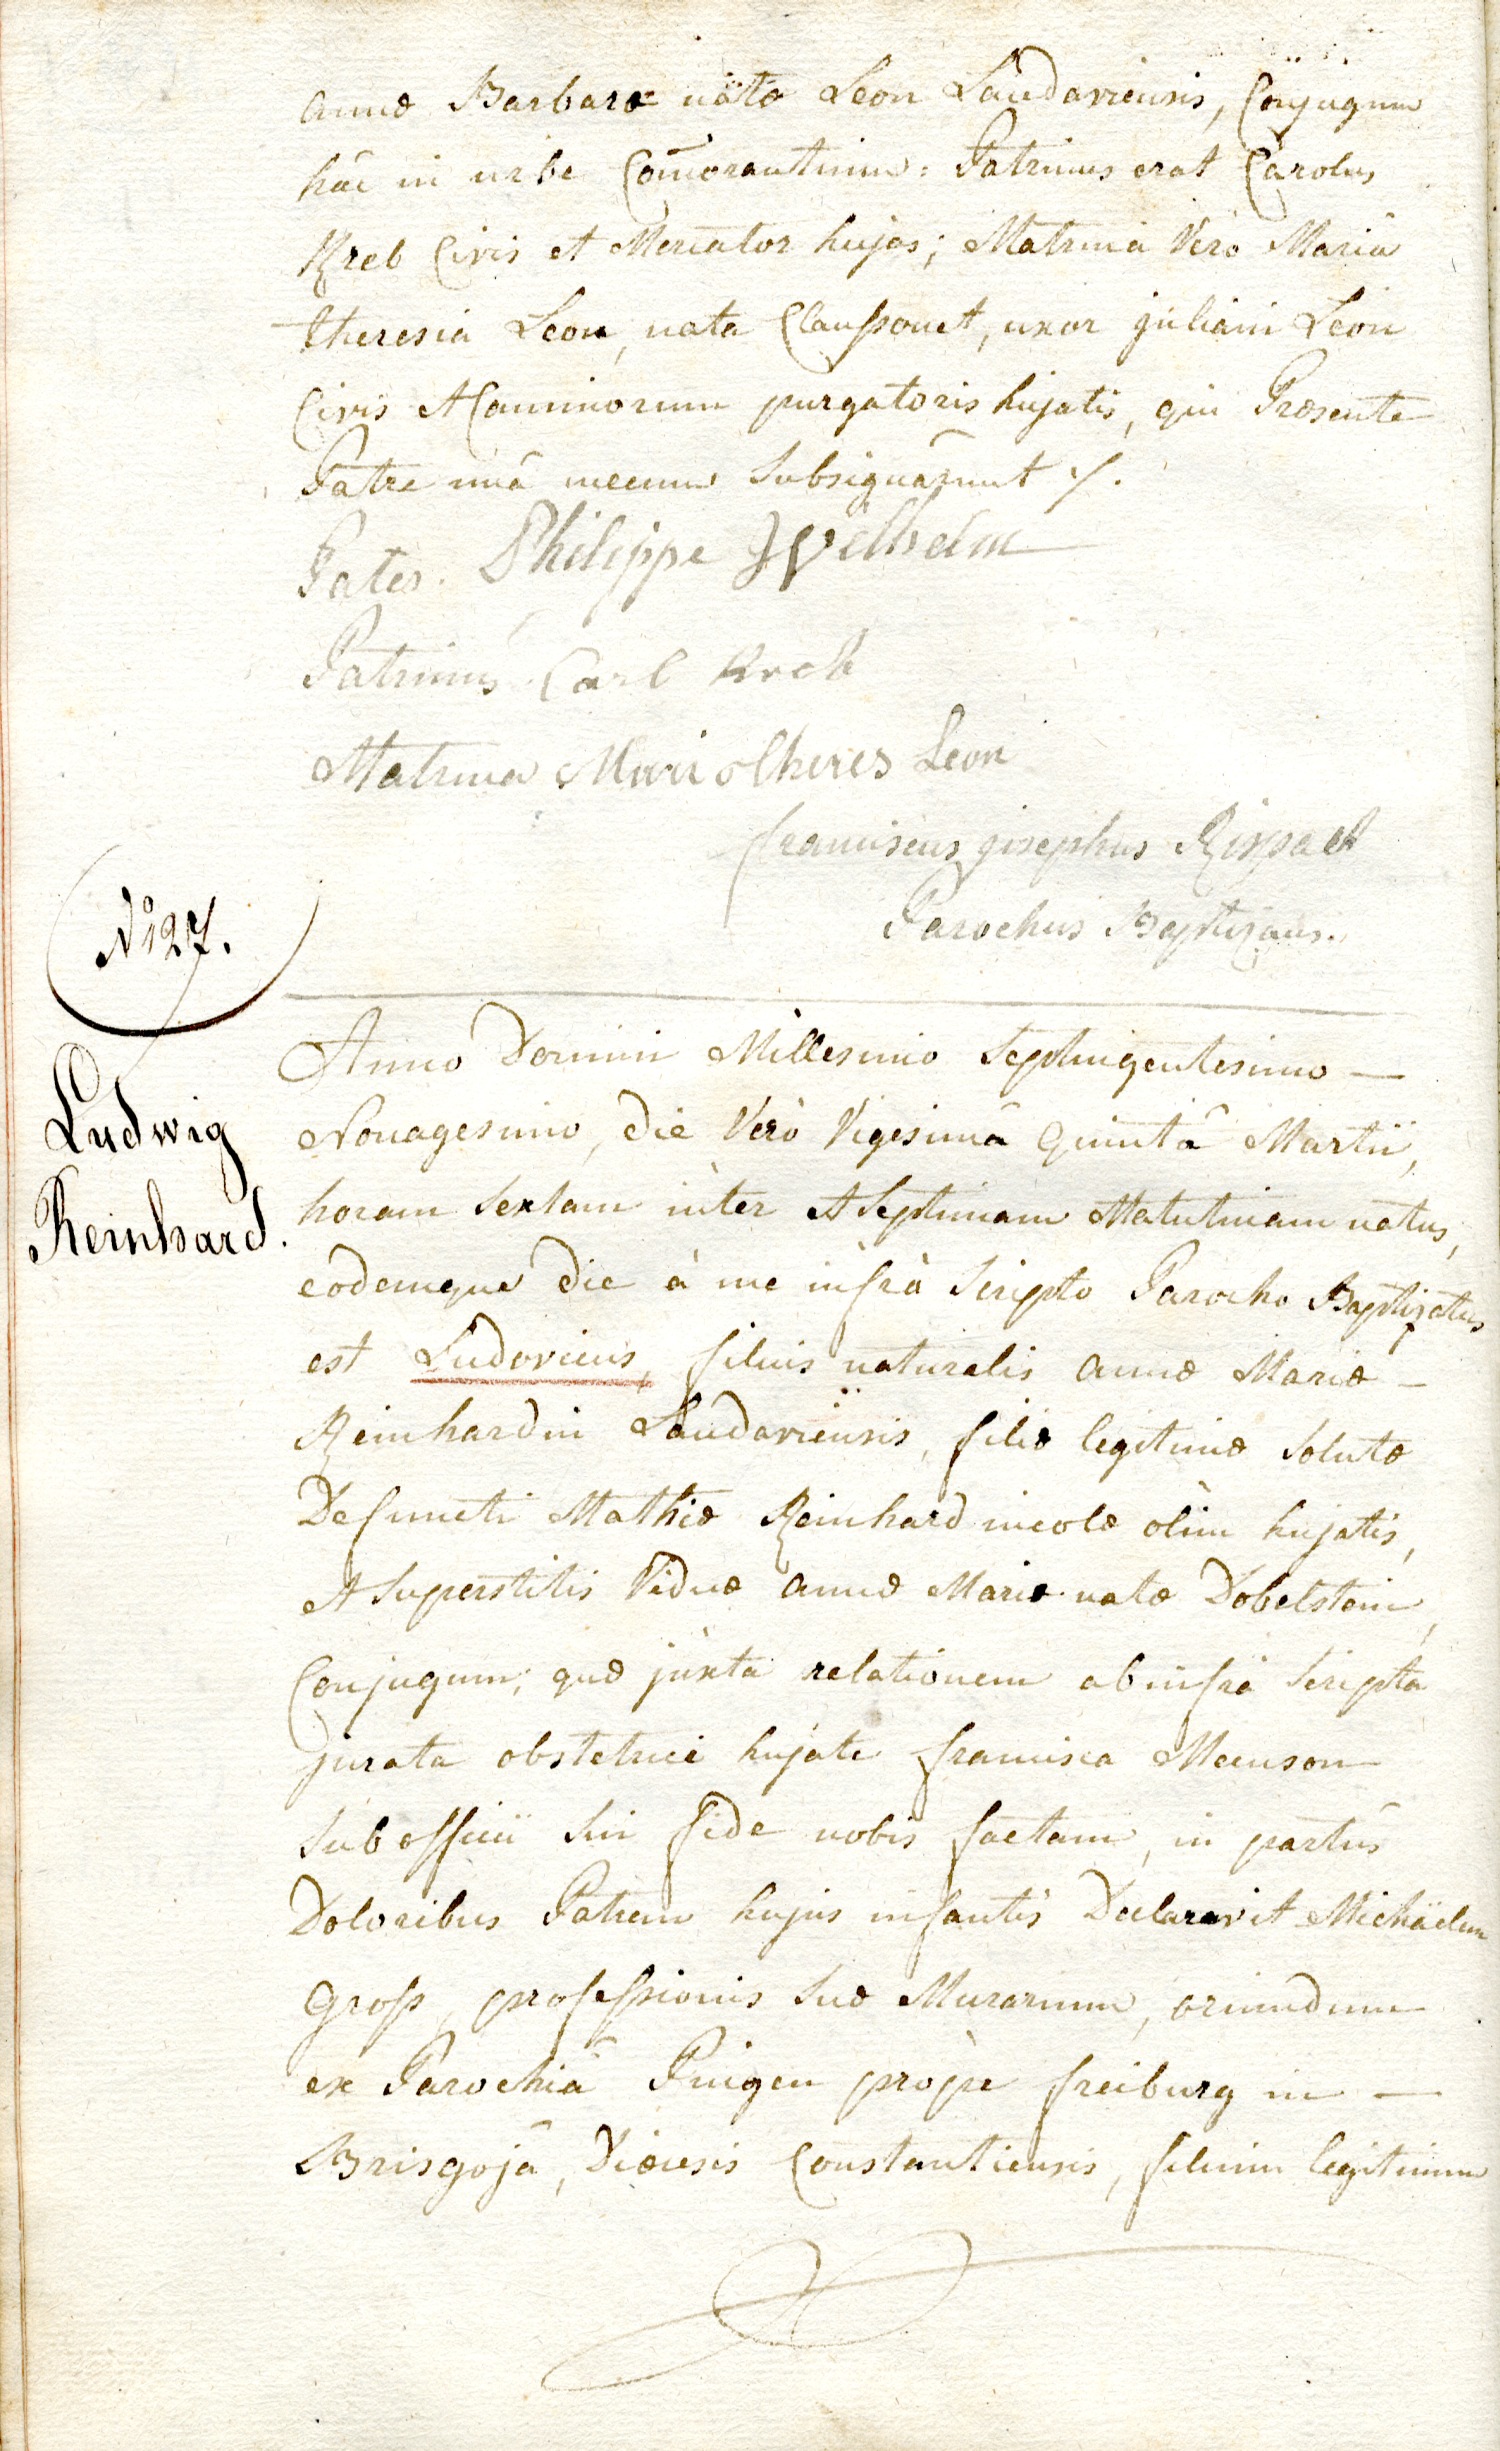 annæ Barbaræ natæ Leon Landaviensis, Conjugum
hâc in urbe Com̄orantium: Patrinus erat Carolus
Kreb Civis et Mercator hujas; Matrina Verò Maria
theresia Leon, nata Claussonet, uxor juliani Leon
Civis et Caminorum purgatoris hujatis, qui Præsente
Patre unâ mecum subsignârunt ·/.
Pater. Philippe Wilhelm
Patrinus Carl Kreb
Matrina Maria Theres Leon
franciscus josephus
Parochus Baptizans.
Nº 27.
Ludwig
Reinhard.
Anno Domini Millesimo Septingentesimo —
Nonagesimo, die Verò Vigesimâ Quintâ Martii,
horam sextam inter et Septimam Matutinam natus,
eodemque die à me infrà scripto Parocho Baptizatus
est Ludovicus, filius naturalis annæ Mariæ —
Reinhardin Landaviensis, filiæ legitimæ solutæ
Defuncti Mathiæ Reinhard incolæ olim hujatis,
et superstitis Viduæ annæ Mariæ natæ Dobelstein,
Conjugum; quæ juxta relationem ab infrà scripta
jurata obstetrice hujate francisca Meuson
sub officii sui fide nobis factam, in partûs
Doloribus Patrem hujus infantis Declaravit Michäelem
Gross, professionis suæ Murarium, oriundum
ex Parochiâ Pringen propè freiburg in —
Brisgojâ, Diœcesis Constantiensis, filium legitimum